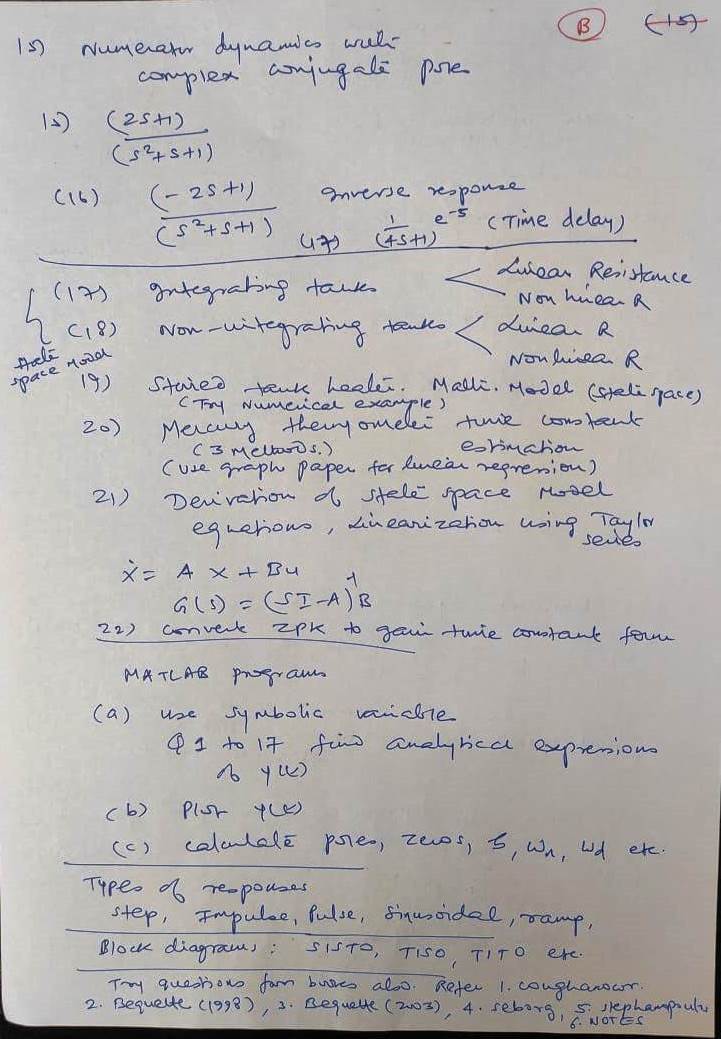 (B) (15)
15) Numerator dynamics with
complex conjugate poles
15) (2s+1)
(s²+s+1)
(16) (-2s+1) Inverse response
(s²+s+1) (17) 1 e^-s (Time delay)
(4s+1)
(17) Integrating tanks < Linear Resistance
Non linear R
(18) Non-integrating tanks < Linear R
Non linear R
State space Model
19) Stirred tank heater. Math. Model (State space)
(Try Numerical example)
20) Mercury thermometer time constant
(3 Methods.) estimation
(use graph paper for linear regression)
21) Derivation of state space Model
equations, Linearization using Taylor
series
ẋ = A x + Bu
G(s) = (SI-A)^-1 B
22) convert ZPK to gain time constant form
MATLAB programs
(a) use symbolic variable
Q 1 to 17 find analytical expressions
of y(t)
(b) Plot y(t)
(c) calculate poles, zeros, ζ, ωn, ωd etc.
Types of responses
Step, Impulse, Pulse, Sinusoidal, ramp,
Block diagrams: SISTO, TISO, TITO etc.
Try questions from books also. Refer 1. Coughanowr.
2. Bequette (1998), 3. Bequette (2003), 4. Seborg, 5. Stephanopoulu
6. NOTES